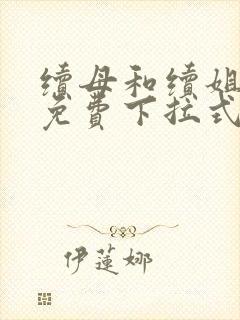 續母和續姐
免費下拉式
伊蓮娜